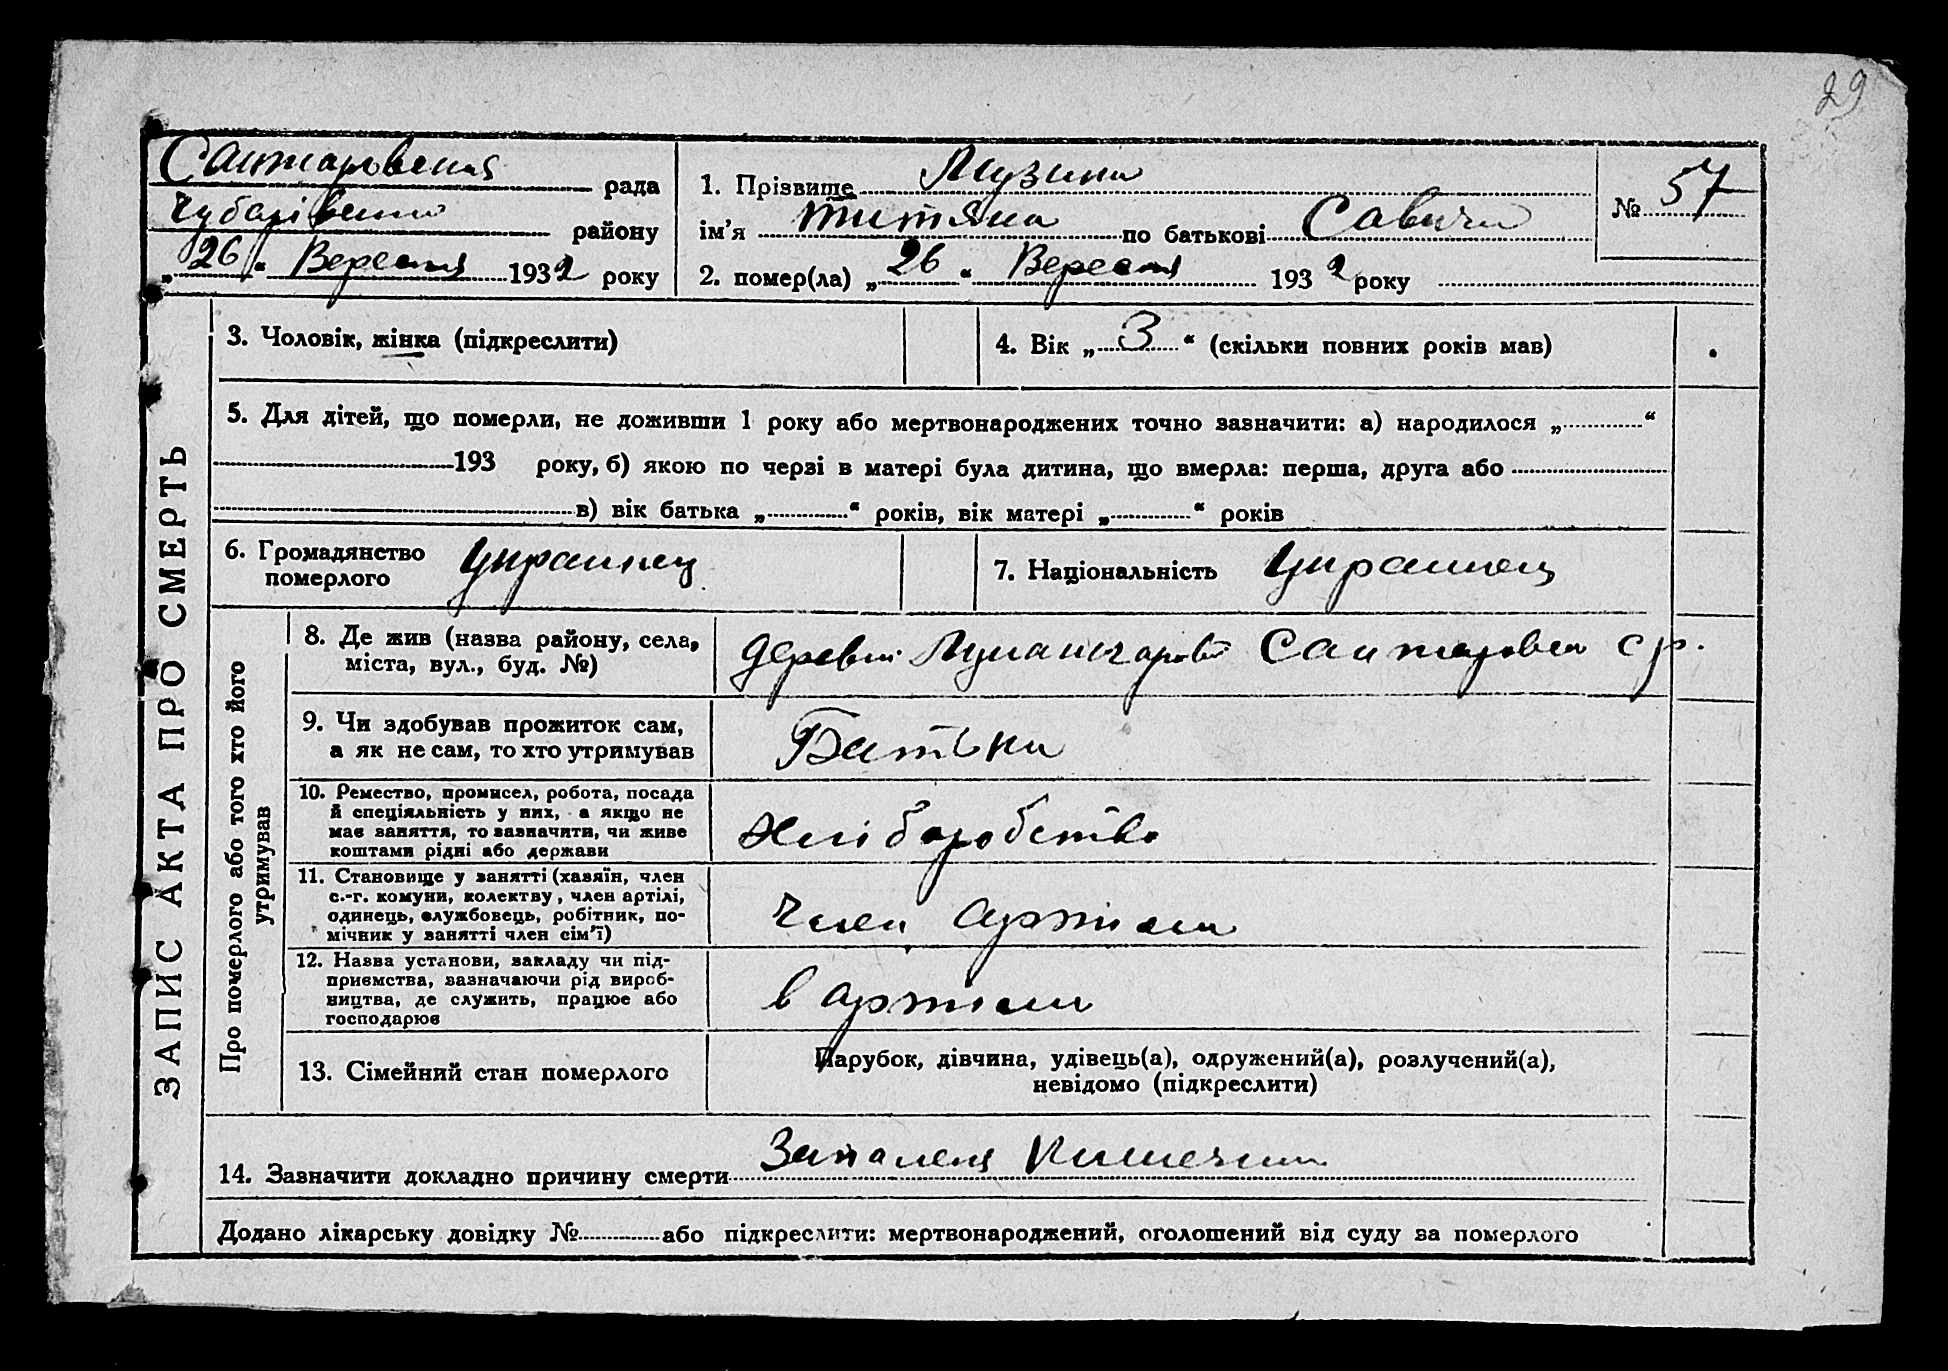 29
Сантаровская рада
Чубарівського району
„26“ Вересня 1932 року
1. Прізвище Музика
ім’я Титяна по батькові Савична
2. помер(ла) „26“ Вересня 1932 року
№ 57
ЗАПИС АКТА ПРО СМЕРТЬ
3. Чоловік, жінка (підкреслити)
4. Вік „3“ (скільки повних років мав)
5. Для дітей, що померли, не доживши 1 року або мертвонароджених точно зазначити: а) народилося „ “
193 року, б) якою по черзі в матері була дитина, що вмерла: перша, друга або
в) вік батька „ “ років, вік матері „ “ років
6. Громадянство
померлого Украинец
7. Національність Украинец
Про померлого або того хто його
утримував
8. Де жив (назва району, села,
міста, вул., буд. №)
деревня Сантаровская с р.
9. Чи здобував прожиток сам,
а як не сам, то хто утримував
Батьки
10. Ремество, промисел, робота, посада
й спеціяльність у них, а якщо не
має заняття, то зазначити, чи живе
коштами рідні або держави
Хліборобство
11. Становище у занятті (хазяїн, член
с.-г. комуни, колектву, член артілі,
одинець, службовець, робітник, по-
мічник у занятті член сім’ї)
Член артіли
12. Назва установи, закладу чи під-
приємства, зазначаючи рід вироб-
ництва, де служить, працює або
господарює
в артіли
13. Сімейний стан померлого
Парубок, дівчина, удівець(а), одружений(а), розлучений(а),
невідомо (підкреслити)
14. Зазначити докладно причину смерти Запаленя Кишечник
Додано лікарську довідку № або підкреслити: мертвонароджений, оголошений від суду за померлого